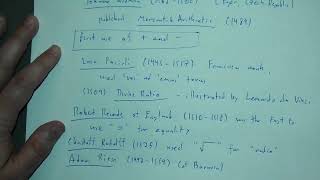 Johannes Widmann (1462-1500) (Eger, Czech Republic)
published Mercantile Arithmetic (1489)
First use of + and -
Luca Pacioli (1445-1517) Franciscan monk,
used
(1509) Divine Ratio - illustrated by Leonardo da Vinci
Robert Recorde of England (1510-1558) was the first to
use "=" for equality
Christoff Rudolff (1525) used "√" for "radix"
Adam Riese (1492-1559) (of Bavaria)